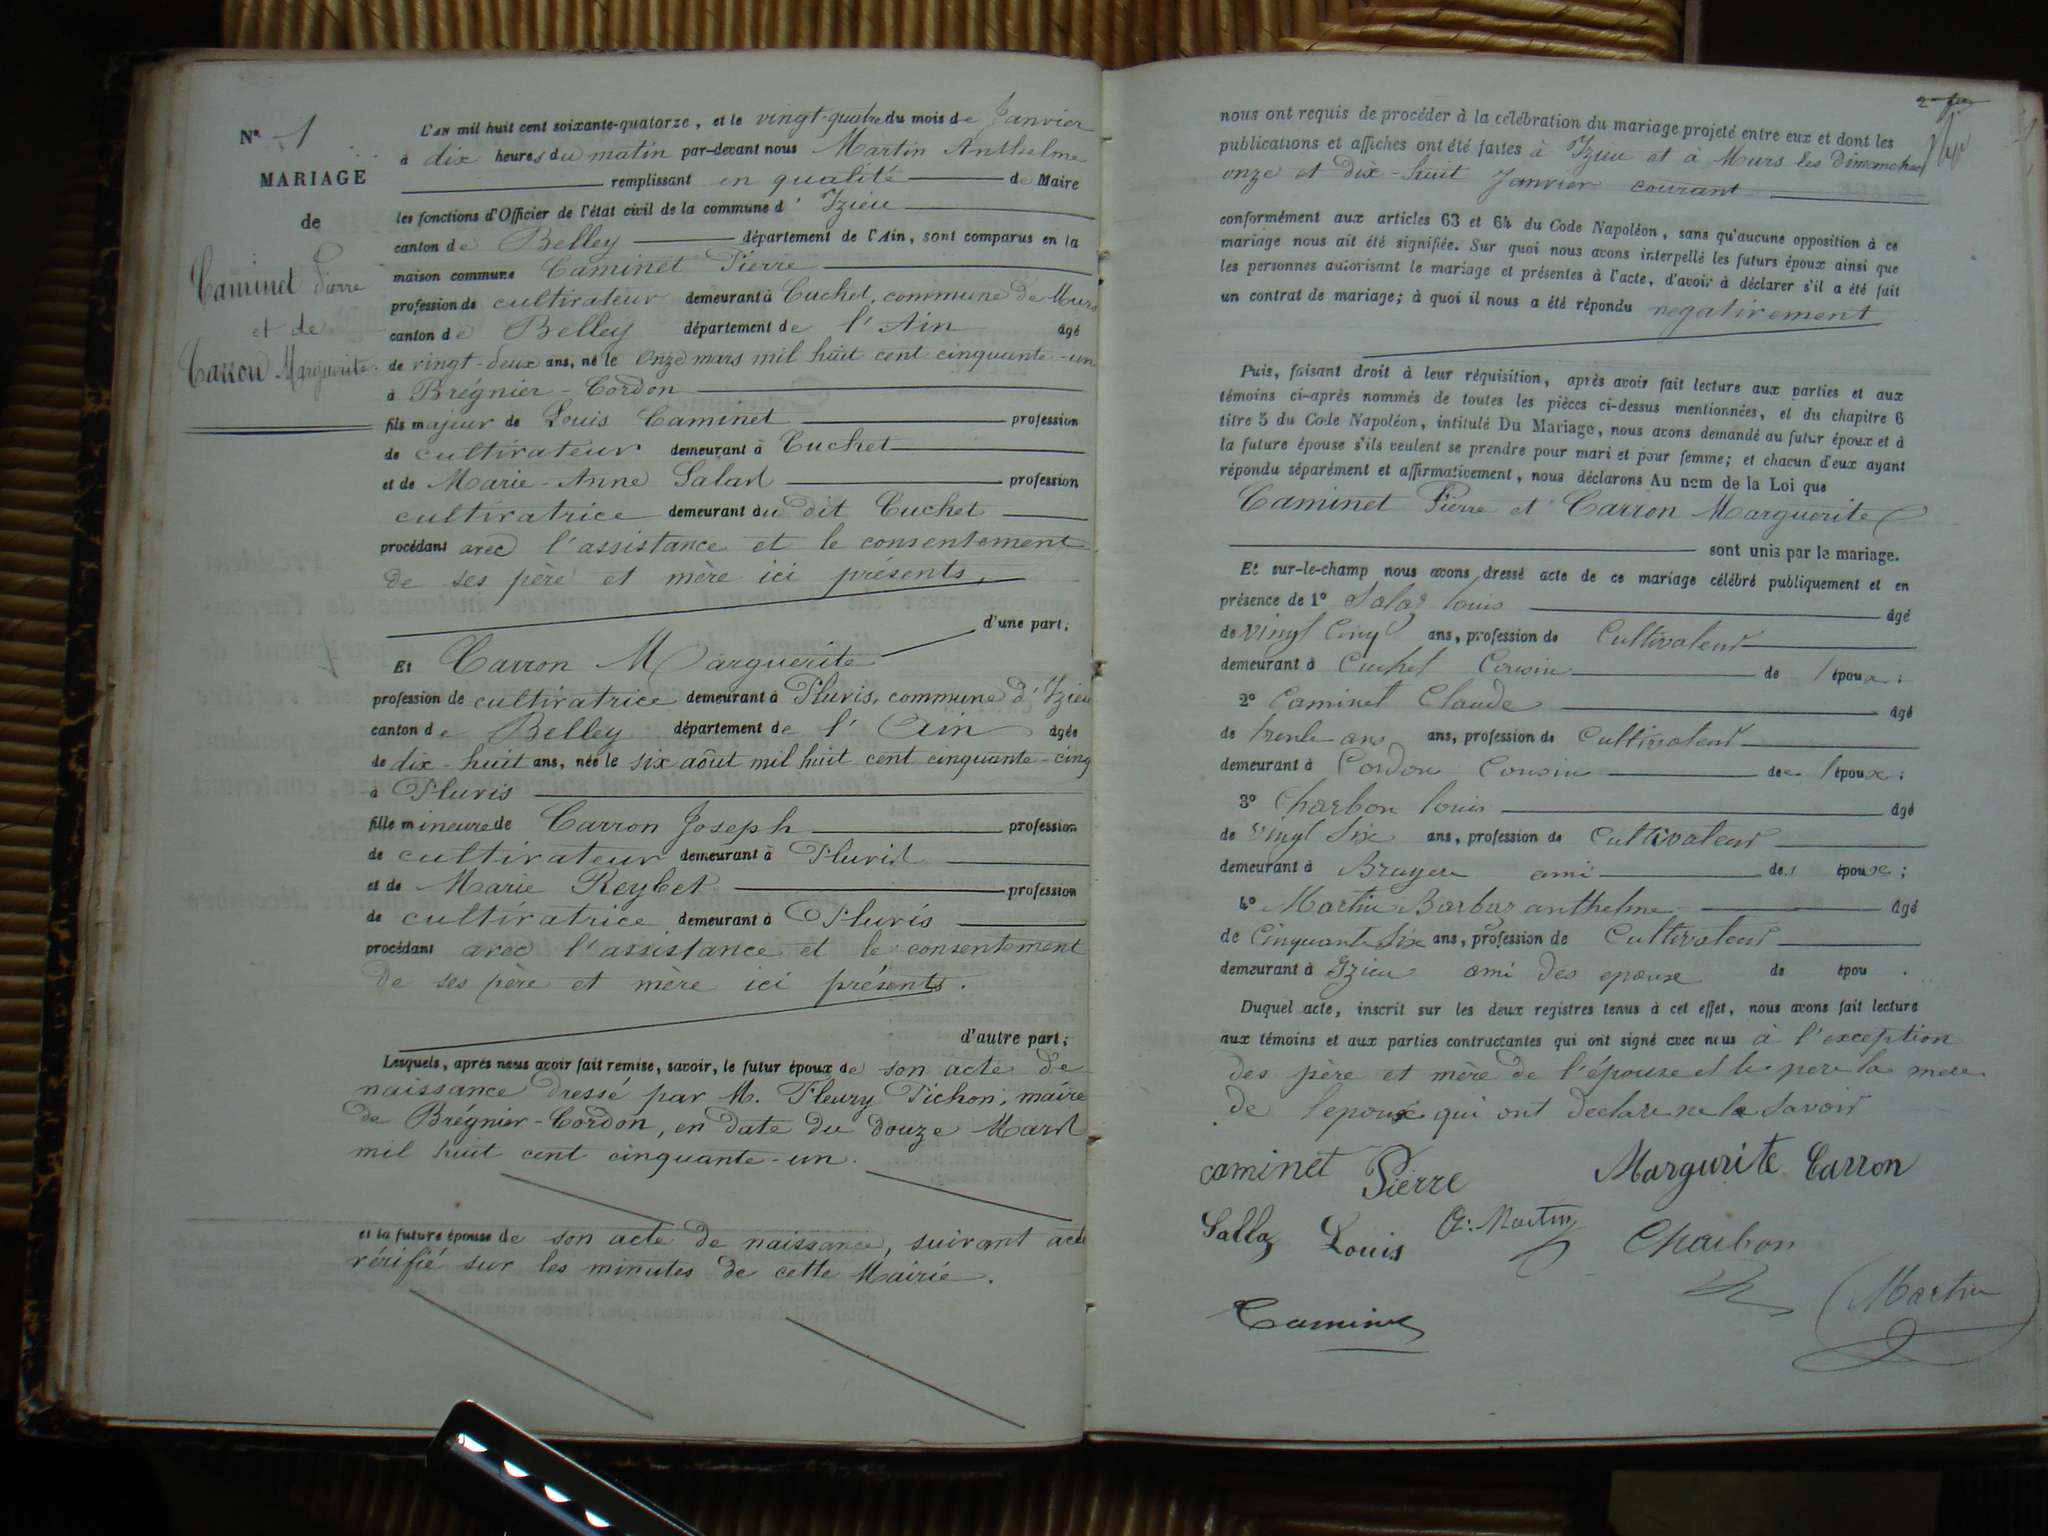 N°. 1
MARIAGE
de
Caminet Pierre
et de
Carron Marguerite.
L'AN mil huit cent soixante-quatorze, et le vingt-quatre du mois de Janvier
à dix heures du matin par-devant nous Martin Anthelme
remplissant en qualité de Maire
les fonctions d'Officier de l'état civil de la commune d' Izieu
canton de Belley département de l'Ain, sont comparus en la
maison commune Caminet Pierre
profession de cultivateur demeurant à Cuchet, commune de Murs
canton de Belley département de l'Ain âgé
de vingt-deux ans, né le onze mars mil huit cent cinquante-un
à Brégnier-Cordon
fils majeur de Louis Caminet profession
de cultivateur demeurant à Cuchet
et de Marie-Anne Salaz profession
cultivatrice demeurant au dit Cuchet
procédant avec l'assistance et le consentement
de ses père et mère ici présents,
d'une part;
Et Carron Marguerite
profession de cultivatrice demeurant à Pluvis, commune d'Izieu
canton de Belley département de l'Ain âgée
de dix-huit ans, née le six août mil huit cent cinquante-cinq
à Pluvis
fille mineure de Carron Joseph profession
de cultivateur demeurant à Pluvis
et de Marie Reybet profession
de cultivatrice demeurant à Pluvis
procédant avec l'assistance et le consentement
de ses père et mère ici présents.
d'autre part;
Lesquels, après nous avoir fait remise, savoir, le futur époux de son acte de
naissance dressé par M. Fleury Pichon, maire
de Brégnier-Cordon, en date du douze Mars
mil huit cent cinquante-un.
et la future épouse de son acte de naissance, suivant acte
vérifié sur les minutes de cette Mairie.
nous ont requis de procéder à la célébration du mariage projeté entre eux et dont les
publications et affiches ont été faites à Izieu et à Murs les dimanches
onze et dix-huit Janvier courant
conformément aux articles 63 et 64 du Code Napoléon, sans qu'aucune opposition à ce
mariage nous ait été signifiée. Sur quoi nous avons interpellé les futurs époux ainsi que
les personnes autorisant le mariage et présentes à l'acte, d'avoir à déclarer s'il a été fait
un contrat de mariage; à quoi il nous a été répondu negativement
Puis, faisant droit à leur réquisition, après avoir fait lecture aux parties et aux
témoins ci-après nommés de toutes les pièces ci-dessus mentionnées, et du chapitre 6
titre 5 du Code Napoléon, intitulé Du Mariage, nous avons demandé au futur époux et à
la future épouse s'ils veulent se prendre pour mari et pour femme; et chacun d'eux ayant
répondu séparément et affirmativement, nous déclarons Au nom de la Loi que
Caminet Pierre et Carron Marguerite
sont unis par le mariage.
Et sur-le-champ nous avons dressé acte de ce mariage célébré publiquement et en
présence de 1° Salaz louis âgé
de vingt Cinq ans, profession de Cultivateur
demeurant à Cuchet Cousin de l'époux;
2° Caminet Claude âgé
de trente ans ans, profession de Cultivateur
demeurant à Cordon Cousin de l'époux;
3° Charbon louis âgé
de vingt Six ans, profession de Cultivateur
demeurant à Bruyere ami des époux;
4° Martin Barbaz anthelme âgé
de Cinquante Six ans, profession de Cultivateur
demeurant à Izieu ami des epoux de épou .
Duquel acte, inscrit sur les deux registres tenus à cet effet, nous avons fait lecture
aux témoins et aux parties contractantes qui ont signé avec nous à l'exception
des père et mère de l'épouse et le pere la mere
de l'epoux qui ont declare ne le Savoir
caminet Pierre Margurite Carron
Sallaz Louis A. Martin Charbon
Martin
Camine